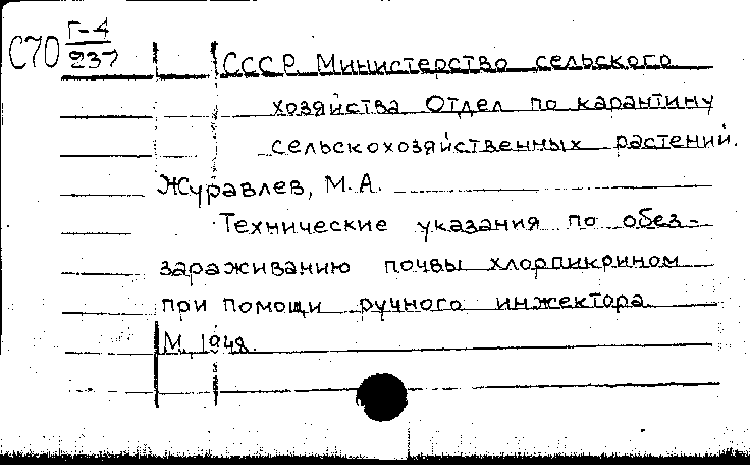 С70 Г-4
237
СССР. Министерство сельского
хозяйства. Отдел по карантину
сельскохозяйственных растений.
Журавлев, М.А.
Технические указания по обез-
зараживанию почвы хлорпикрином
при помощи ручного инжектора.
М., 1948.